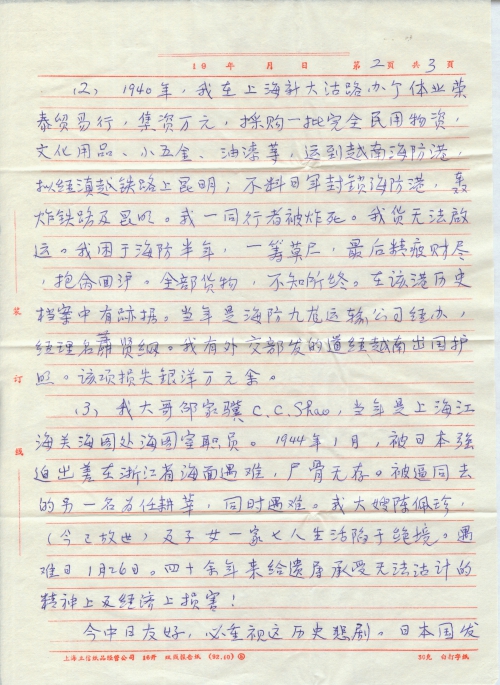 19 年 月 日 第2页 共3页
(2) 1940年，我在上海新大沽路办个体业荣
泰贸易行，集资万元，採购一批完全民用物资，
文化用品、小五金、油漆等，运到越南海防港，
拟经滇越铁路上昆明；不料日军封锁海防港，轰
炸铁路及昆明。我一同行者被炸死。我货无法启
运。我困于海防半年，一筹莫尸，最后精疲财尽
，抱命回沪。全部货物，不知所终。在该港历史
档案中有跡据。当年是海防九龙运输公司经办，
经理名萧贤纲。我有外交部发的道经越南出国护
照。该项损失银洋万元余。
(3) 我大哥邵家骥 C.C.Shao，当年是上海江
海关海图处海图室职员。1944年1月，被日本強
迫出差在浙江省海面遇难，尸骨无存。被逼同去
的另一名为任耕莘，同时遇难。我大嫂陈佩珍，
(今已故世)及子女一家七人生活陷于绝境。遇
难日1月26日。四十余年来给遗属承受无法估计的
精神上及经济上损害！
今中日友好，必重视这历史悲剧。日本国发
装
订
线
上海工信纸品经营公司 16开 双线报告纸 (92.10) 20克 白打字纸